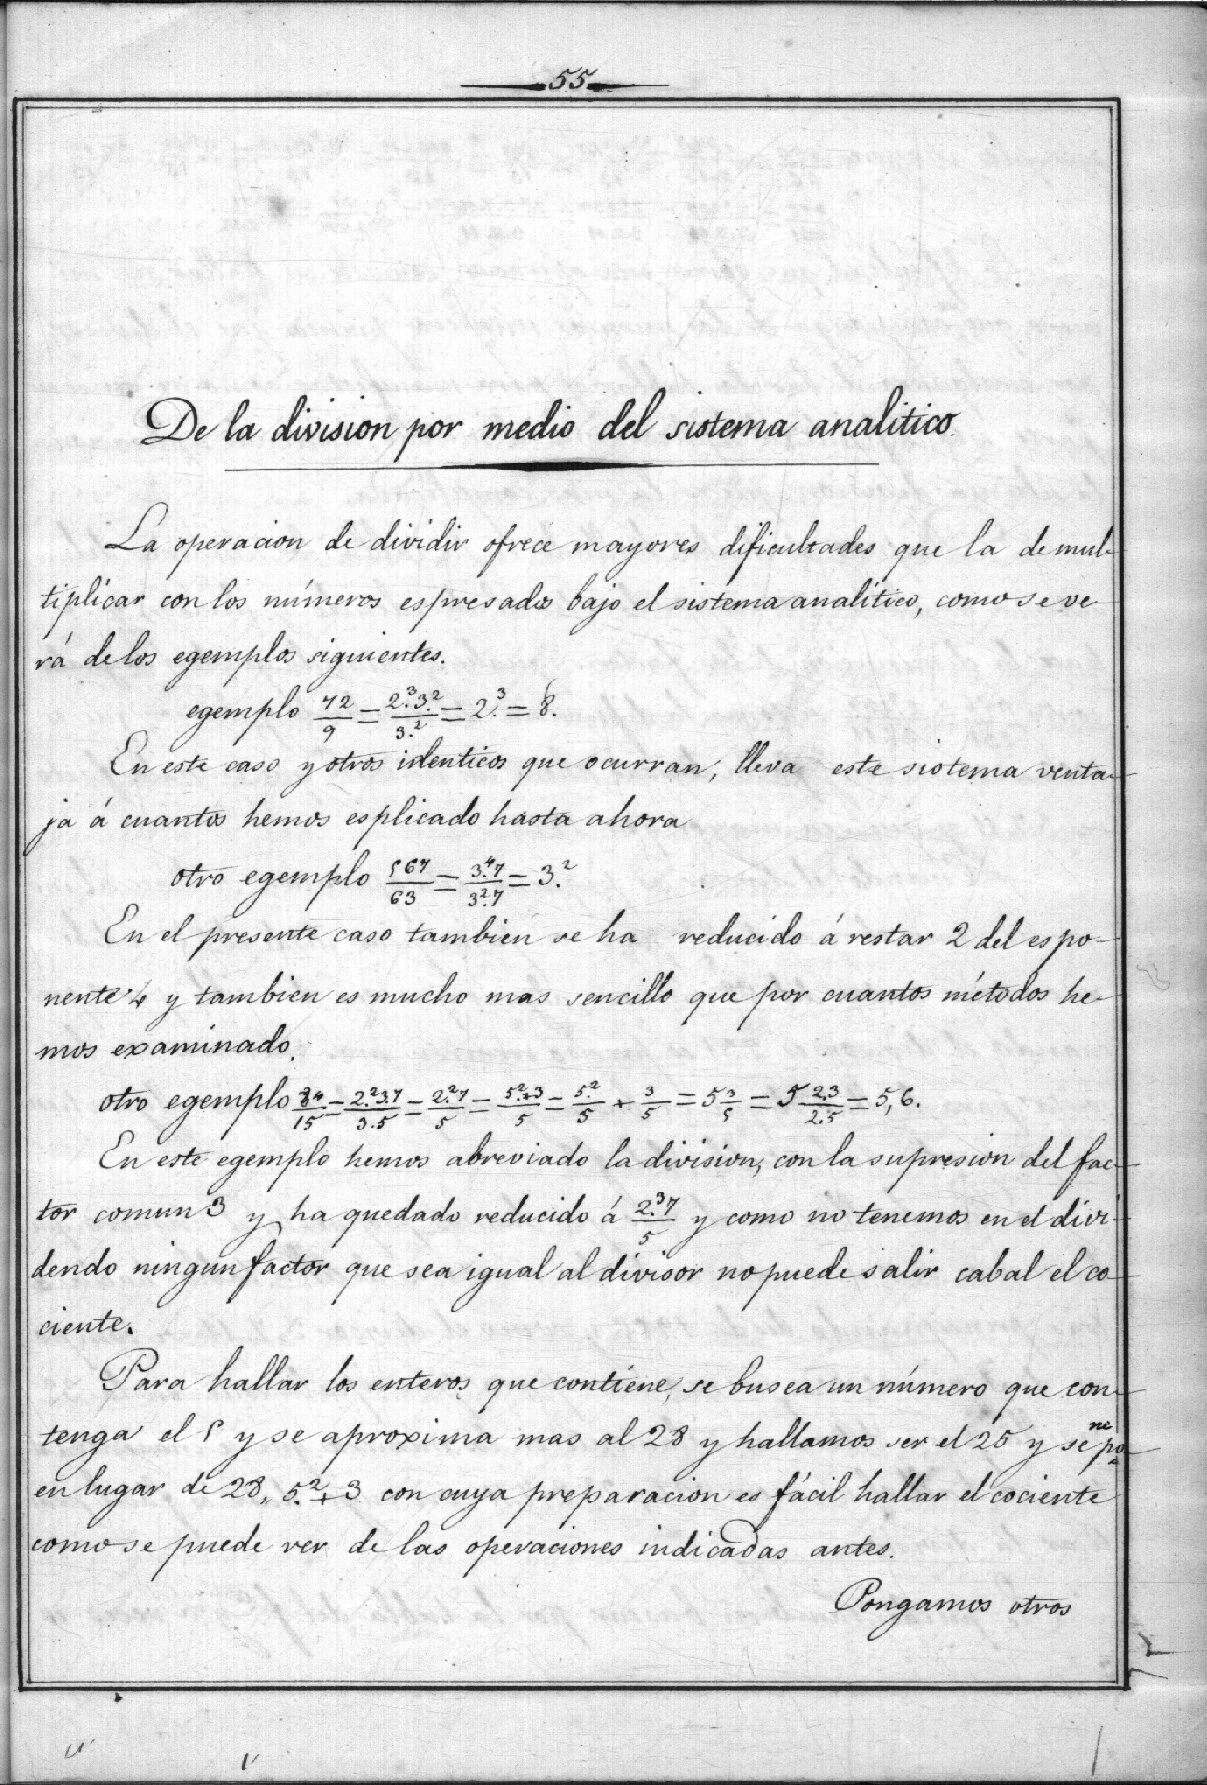 55
De la division por medio del sistema analitico
La operacion de dividir ofrece mayores dificultades que la de mul-
tiplicar con los números espresados bajo el sistema analitico, como se ve
rá de los egemplos siguientes.
egemplo 72/9 = 2.³3.²/3.² = 2.³ = 8.
En este caso y otros identicos que ocurran, lleva este sistema venta-
ja á cuantos hemos esplicado hasta ahora
otro egemplo 567/63 = 3.⁴7/3.²7 = 3.²
En el presente caso tambien se ha reducido á restar 2 del espo-
nente 4 y tambien es mucho mas sencillo que por cuantos métodos he-
mos examinado.
otro egemplo 84/15 = 2.²3.7/3.5 = 2.²7/5 = 5.²+3/5 = 5.²/5 + 3/5 = 5 3/5 = 5 2.3/2.5 = 5,6.
En este egemplo hemos abreviado la division, con la supresion del fac-
tor comun 3 y ha quedado reducido á 2.³7/5 y como no tenemos en el divi-
dendo ningun factor que sea igual al divisor no puede salir cabal el co-
ciente.
Para hallar los enteros que contiene, se busca un número que con-
tenga el 5 y se aproxima mas al 28 y hallamos ser el 25 y se pone
en lugar de 28, 5.²+3 con cuya preparacion es fácil hallar el cociente
como se puede ver de las operaciones indicadas antes.
Pongamos otros